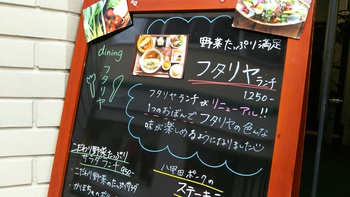 野菜たっぷり満足
フタリヤランチ
1250-
dining
フタリヤ
フタリヤランチがリニューアル!!
1つのおぼんでフタリヤの色んな
味が楽しめるようになりました
こだわり野菜たっぷり
サラダランチ
・こだわり野菜の
・かぼちゃの
八甲田ポークの
ステーキ